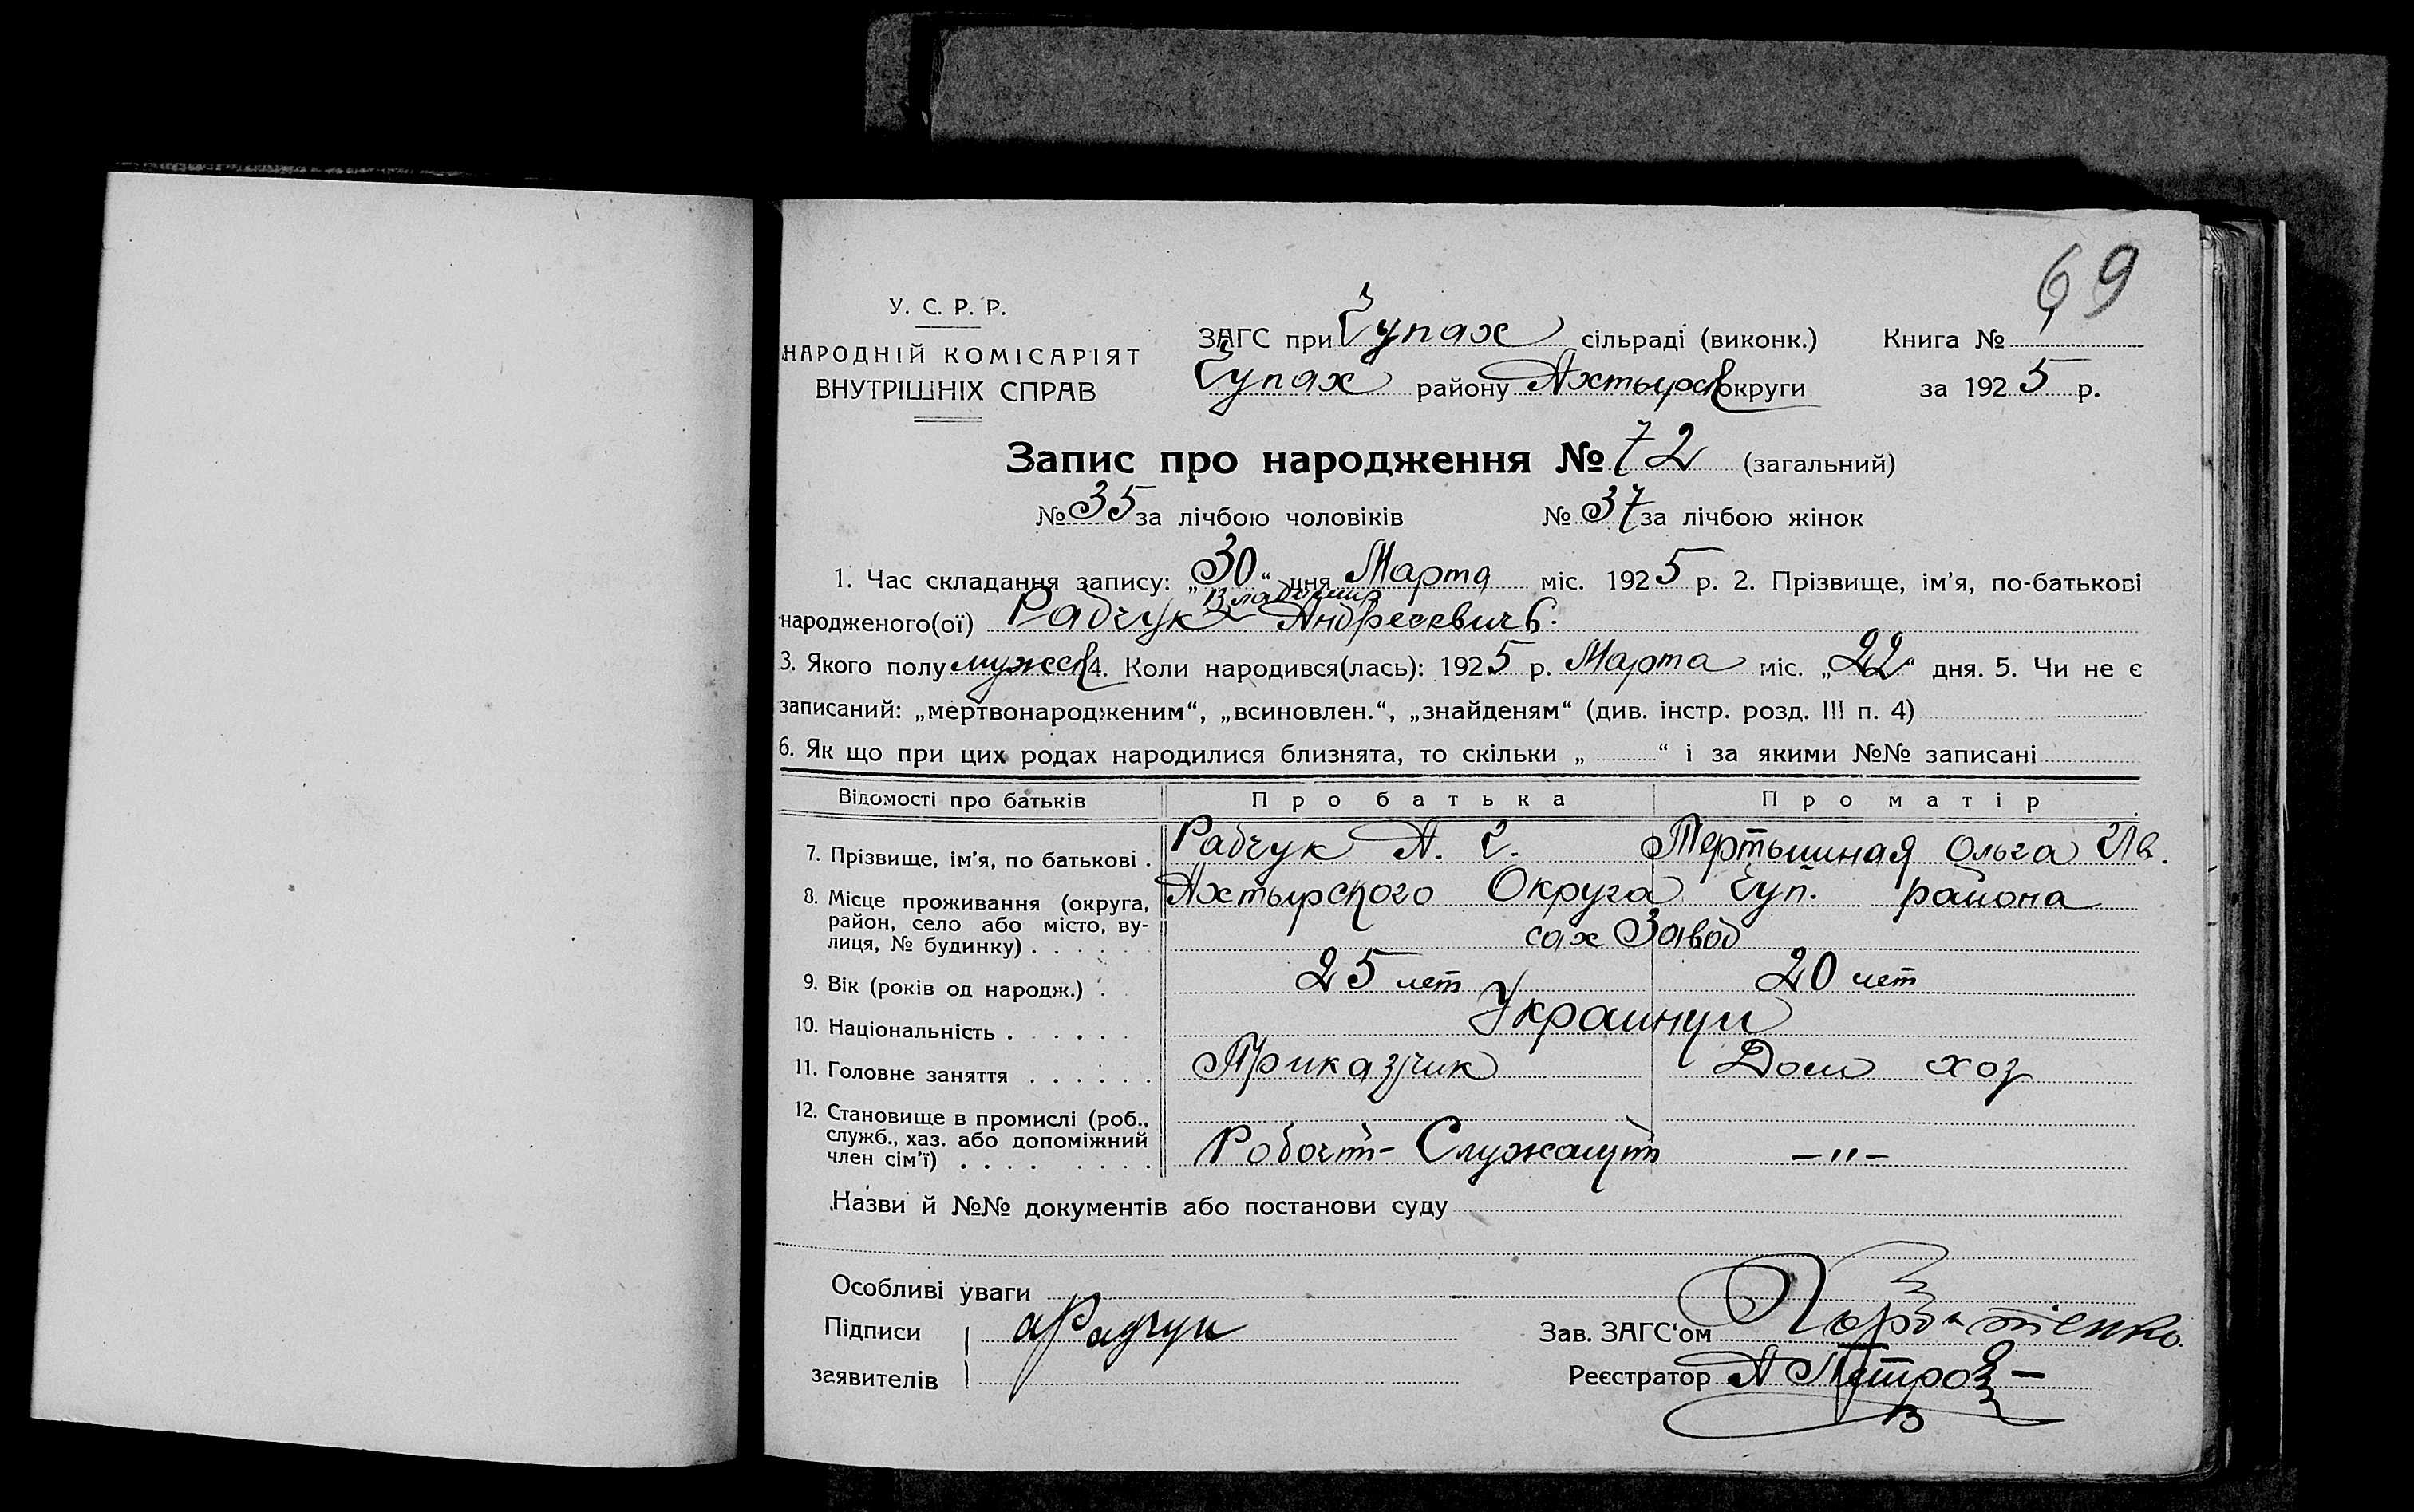 69
У. С. Р. Р.
НАРОДНІЙ КОМІСАРІЯТ
ВНУТРІШНІХ СПРАВ
ЗАГС при Чупах сільраді (виконк.) Книга №
Чупах району Ахтырск округи за 1925 р.
Запис про народження № 72 (загальний)
№ 35 за лічбою чоловіків № 37 за лічбою жінок
1. Час складання запису: „30“ дня Марта міс. 1925 р. 2. Прізвище, ім'я, по-батькові
Владимир
народженого(ої) Рабчук Андреевичъ.
3. Якого полу мужск 4. Коли народився(лась): 1925 р. Марта міс. „22“ дня. 5. Чи не є
записаний: „мертвонародженим“, „всиновлен.“, „знайденям“ (див. інстр. розд. III п. 4)
6. Як що при цих родах народилися близнята, то скільки „ “ і за якими №№ записані
Відомості про батьків Про батька Про матір
7. Прізвище, ім'я, по батькові . Рабчук А. Тертышная Ольга Ив.
8. Місце проживання (округа, Ахтырского Округа Чуп. района
район, село або місто, ву-
сах Завод
лиця, № будинку) . . . . .
9. Вік (років од народж.) . 25 лет 20 лет
10. Національність . . . . . Украинци
11. Головне заняття . . . . . . Приказчик Дом хоз
12. Становище в промислі (роб.,
служб., хаз. або допоміжний
член сім'ї) . . . . . . . . Служащий —"—
Назви й №№ документів або постанови суду
Особливі уваги
Підписи
заявителів
Зав. ЗАГС'ом
Реєстратор А Петров